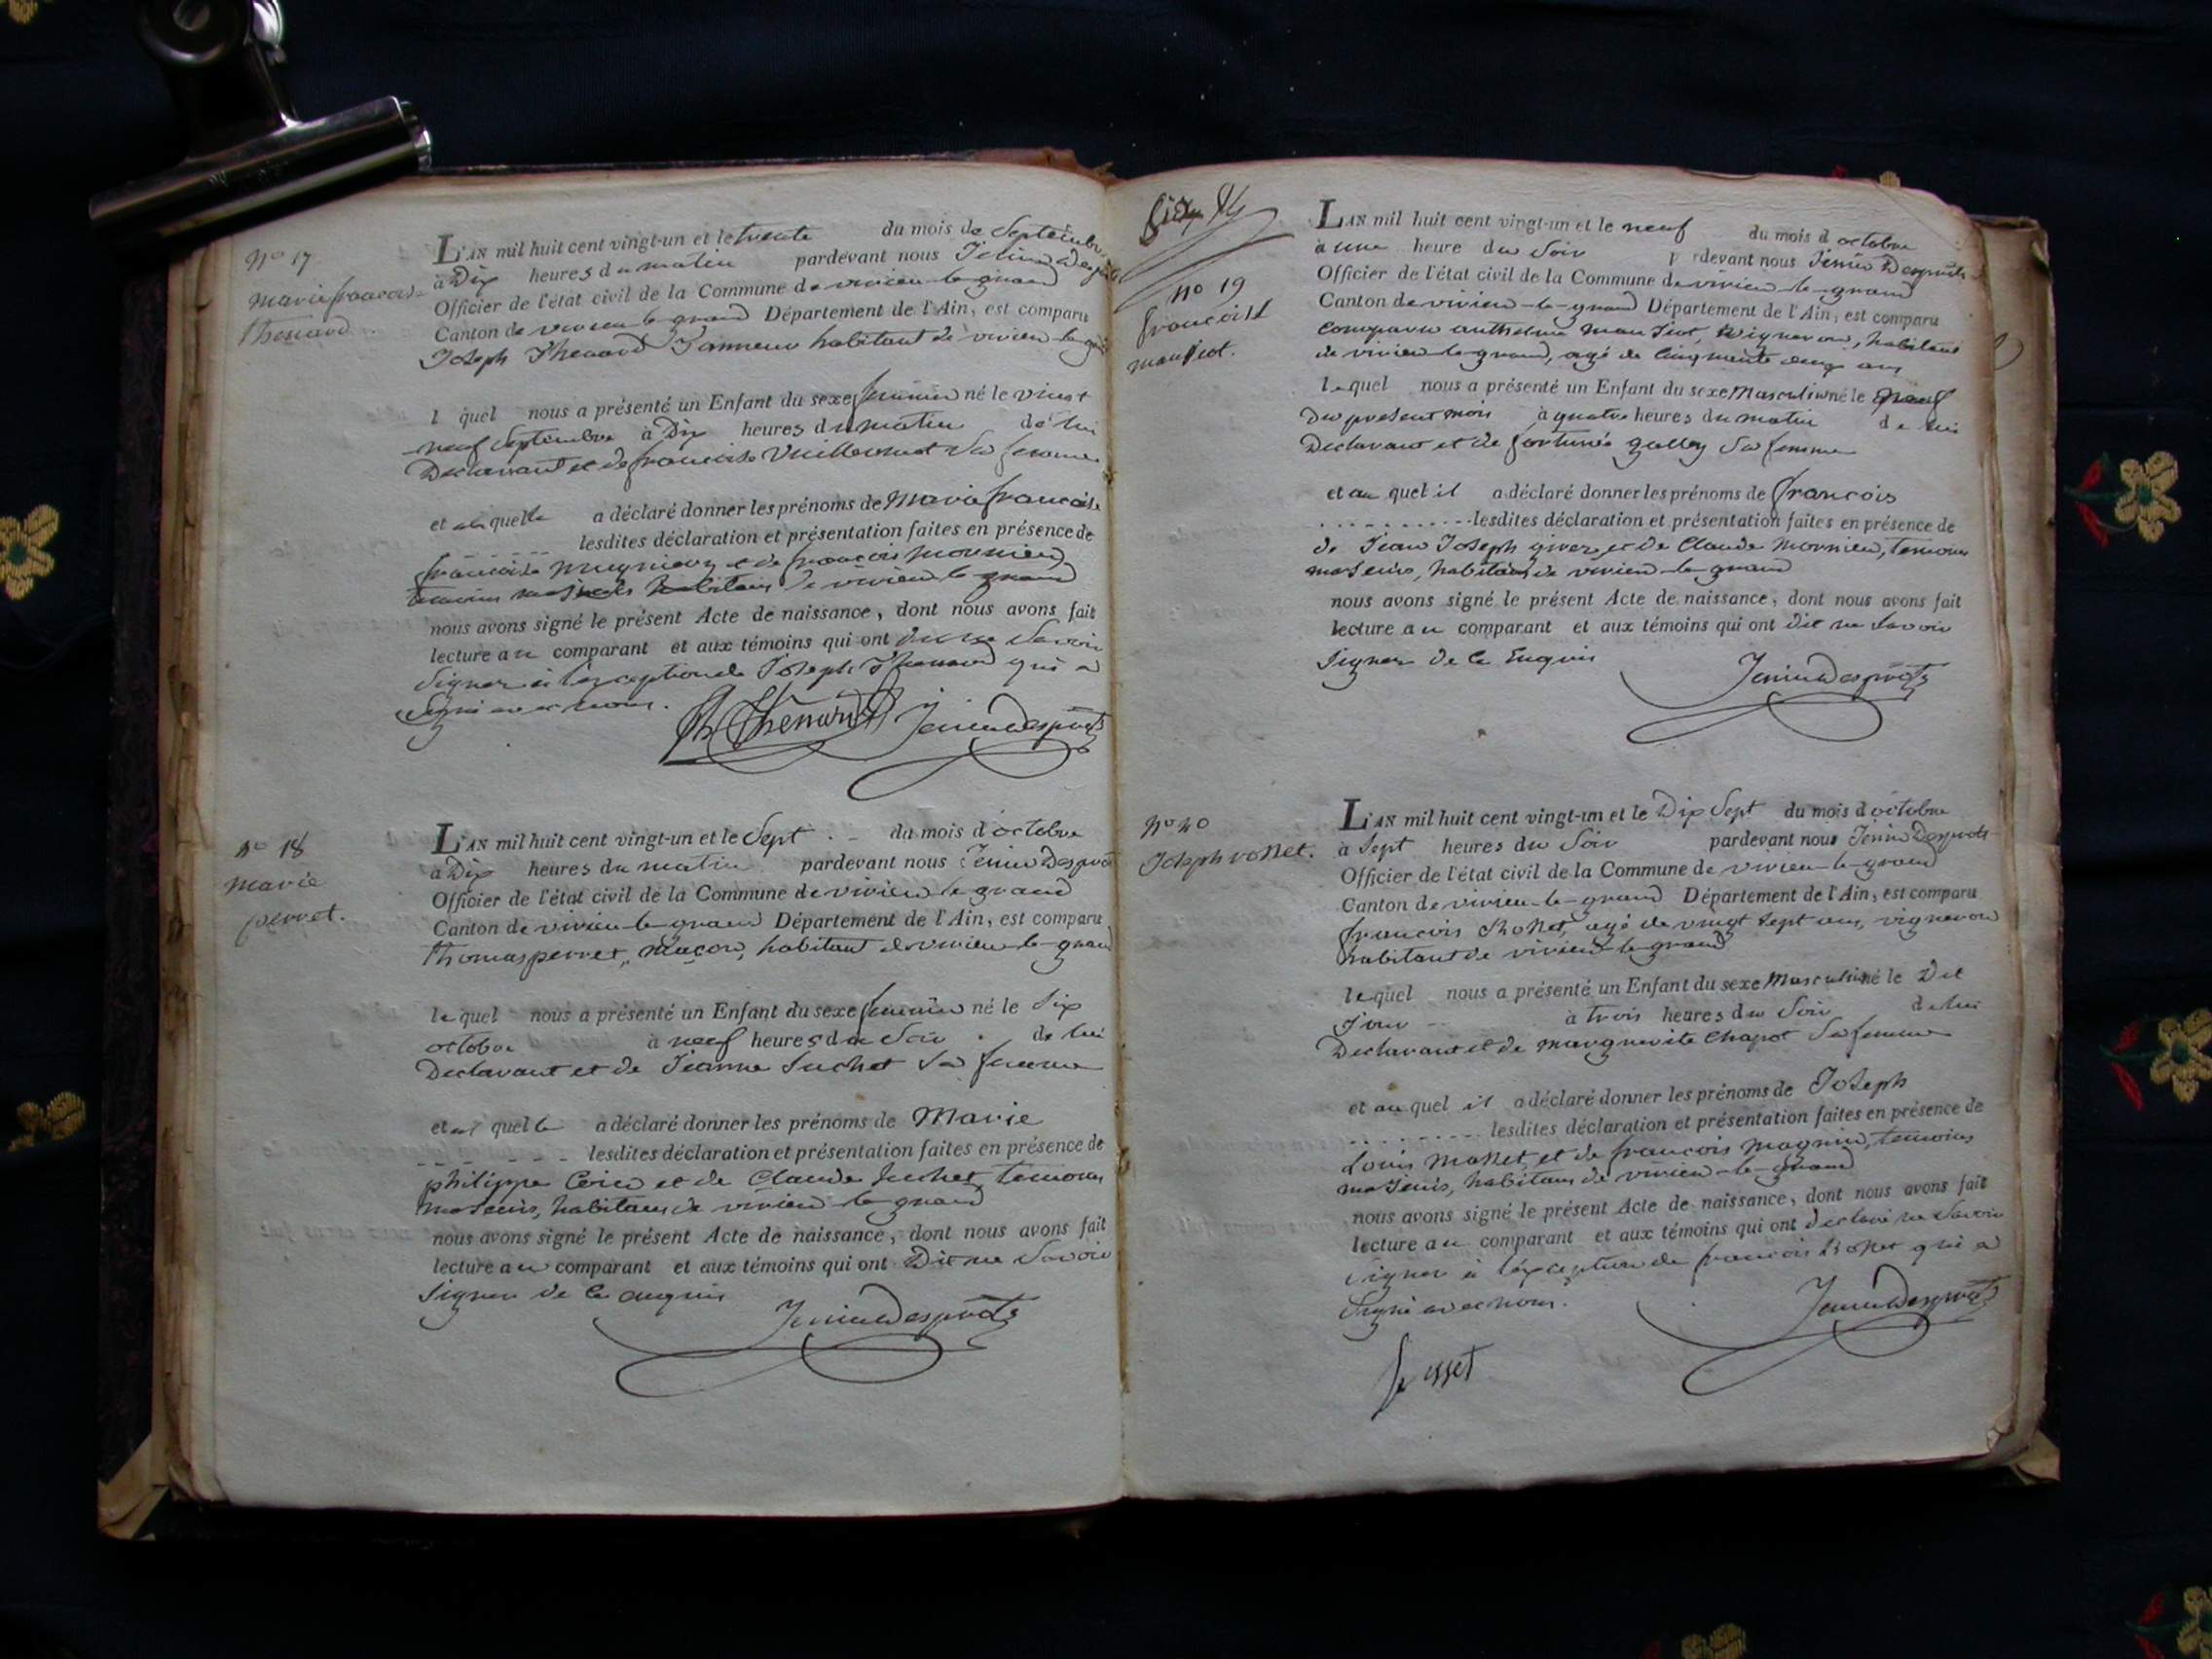 No 17
marie francoise
thenard
L'AN mil huit cent vingt-un et le trente du mois de Septembre
à Dix heures du matin pardevant nous Jenin
Officier de l'état civil de la Commune de virieu le grand
Canton de virieu le grand Département de l'Ain, est comparu
Joseph Thenard habitant de virieu le
lequel nous a présenté un Enfant du sexe feminin né le vingt
neuf Septembre à Dix heures du matin de lui
Declarant et de francoise Vuillermet Sa femme
et quelle a déclaré donner les prénoms de Marie francoise
lesdites déclaration et présentation faites en présence de
et de francois mornieu
temoins habitans de virieu le grand
nous avons signé le présent Acte de naissance, dont nous avons fait
lecture au comparant et aux témoins qui ont dit ne Savoir
Signer à l'exception de Joseph Thenard qui a
Signé avec nous.
Thenard Jenin Desprotz
No 18
marie
perret.
L'AN mil huit cent vingt-un et le Sept du mois d'octobre
à Dix heures du matin pardevant nous Jenin
Officier de l'état civil de la Commune de virieu le grand
Canton de virieu le grand Département de l'Ain, est comparu
thomas perret, maçon, habitant de virieu le grand
lequel nous a présenté un Enfant du sexe feminin né le Six
octobre à neuf heures du Soir de lui
Declarant et de Jeanne Suchet Sa femme
et quelle a déclaré donner les prénoms de Marie
lesdites déclaration et présentation faites en présence de
philippe et de Claude Suchet, temoins
habitans de virieu le grand
nous avons signé le présent Acte de naissance, dont nous avons fait
lecture au comparant et aux témoins qui ont Dit ne Savoir
Signer de ce enquis
Jenin Desprotz
No 19
francois
L'AN mil huit cent vingt-un et le neuf du mois d octobre
à une heure du Soir pardevant nous Jenin
Officier de l'état civil de la Commune de virieu le grand
Canton de virieu le grand Département de l'Ain, est comparu
comparu anthelme Vigneron, habitant
de virieu le grand, agé de Cinquante deux ans
lequel nous a présenté un Enfant du sexe Masculin né le neuf
du present mois à quatre heures du matin de lui
Declarant et de fortunée Sa femme
et au quel il a déclaré donner les prénoms de francois
lesdites déclaration et présentation faites en présence de
de Jean Joseph et de Claude Mornieu, temoins
habitans de virieu le grand
nous avons signé le présent Acte de naissance, dont nous avons fait
lecture au comparant et aux témoins qui ont dit ne Savoir
Signer de ce Enquis
Jenin Desprotz
No 20
Joseph rosset.
L'AN mil huit cent vingt-un et le Dix Sept du mois d'octobre
à Sept heures du Soir pardevant nous Jenin Desprotz
Officier de l'état civil de la Commune de virieu le grand
Canton de virieu le grand Département de l'Ain, est comparu
francois Rosset, agé de vingt Sept ans, vigneron
habitant de virieu le grand
lequel nous a présenté un Enfant du sexe Masculin né le Dit
Jour à trois heures du Soir de lui
Declarant et de marguerite Chapot Sa femme
et au quel il a déclaré donner les prénoms de Joseph
lesdites déclaration et présentation faites en présence de
Louis et de francois magnin, temoins
habitans de virieu le grand
nous avons signé le présent Acte de naissance, dont nous avons fait
lecture au comparant et aux témoins qui ont declaré ne Savoir
Signer à l'exception de francois Rosset qui a
Signé avec nous.
Jenin Desprotz